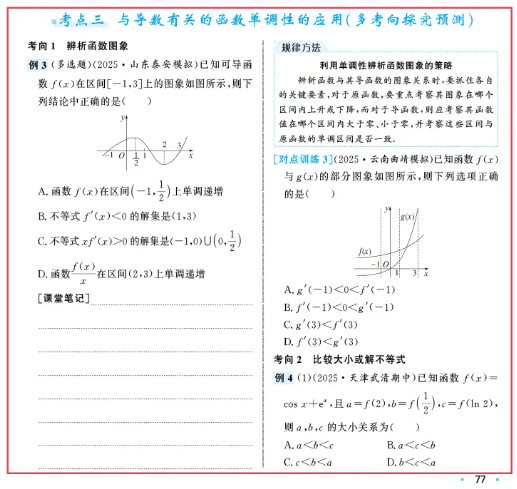 考点三 与导数有关的函数单调性的应用(多考向探究预测)
考向1 辨析函数图象
例3 (多选题)(2025·山东泰安模拟)已知可导函
数 f(x)在区间[-1,3]上的图象如图所示,则下
列结论中正确的是( )
y
-1 O 1/2 1 2 3 x
A. 函数 f(x)在区间(-1,1/2)上单调递增
B. 不等式 f′(x)<0 的解集是(1,3)
C. 不等式 xf′(x)>0 的解集是(-1,0)∪(0,1/2)
D. 函数 f(x)/x 在区间(2,3)上单调递增
[课堂笔记]
规律方法
利用单调性辨析函数图象的策略
辨析函数与其导函数的图象关系时,要抓住各自
的关键要素,对于原函数,要重点考察其图象在哪个
区间内上升或下降,而对于导函数,则应考察其函数
值在哪个区间内大于零、小于零,并考察这些区间与
原函数的单调区间是否一致.
[对点训练3](2025·云南曲靖模拟)已知函数 f(x)
与 g(x)的部分图象如图所示,则下列选项正确
的是( )
y
g(x)
f(x)
-1 O 1 3 x
A. g′(-1)<0<f′(-1)
B. f′(-1)<0<g′(-1)
C. g′(3)<f′(3)
D. f′(3)<g′(3)
考向2 比较大小或解不等式
例4 (1)(2025·天津武清期中)已知函数 f(x)=
cos x+eˣ,且 a=f(2),b=f(1/2),c=f(ln 2),
则 a,b,c 的大小关系为( )
A. a<b<c B. a<c<b
C. c<b<a D. b<c<a
77